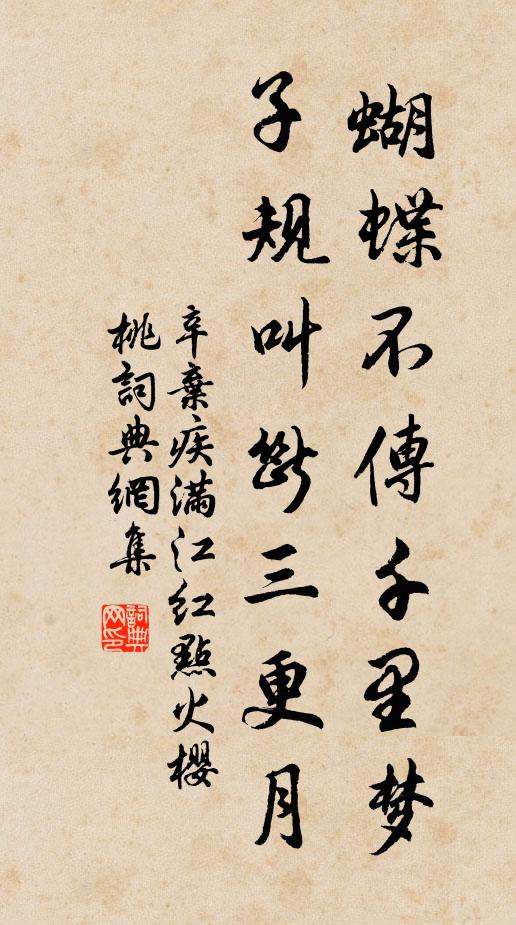 蝴蝶不傳千里梦
子规叫斷三更月
辛棄疾满江红點火櫻
桃詞典網集
詞典
网印